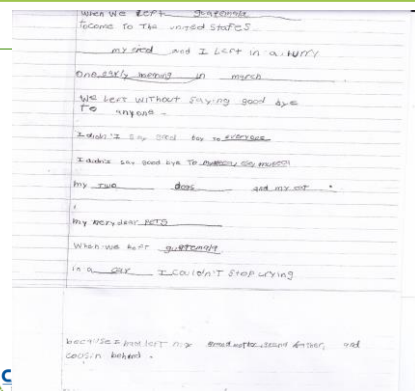 when we left guatemala
to come To The united states
my and I Left in a hurry
One early morning in march
We Left without saying good bye
To anyone -
I didn't say good bay to everyone
I didn't say good bye To
my two dogs and my cat .
my very dear pets
When we left guatemala
in a car I couldn't stop crying
because I had left my grand mother, grand father, and
cousin behind .